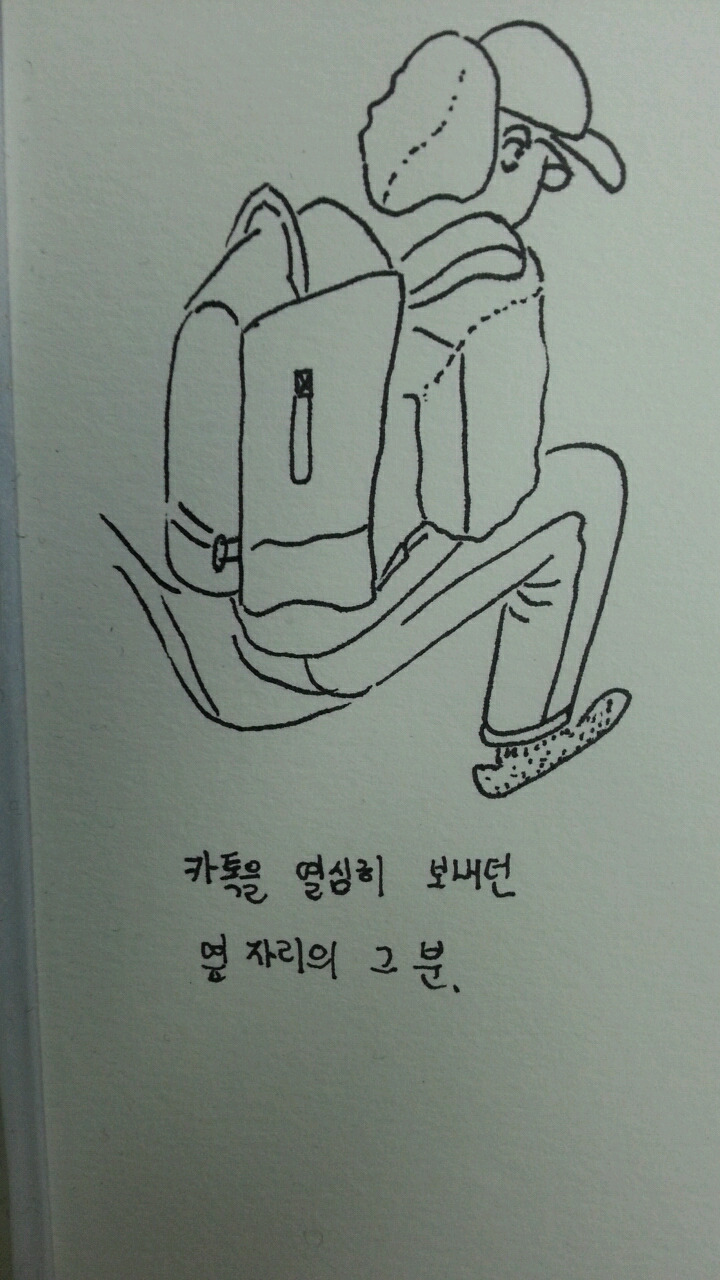 카톡을 열심히 보내던
옆 자리의 그 분.